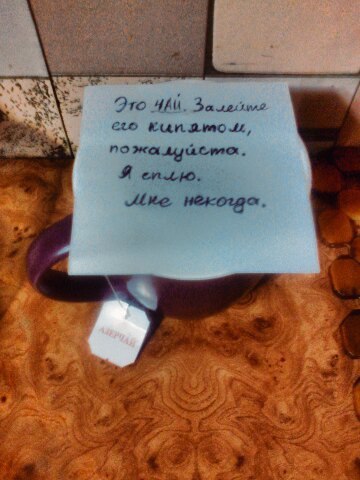 Это ЧАЙ. Залейте
его кипятом,
пожалуйста.
Я сплю.
Мне некогда.
АЗЕРЧАЙ